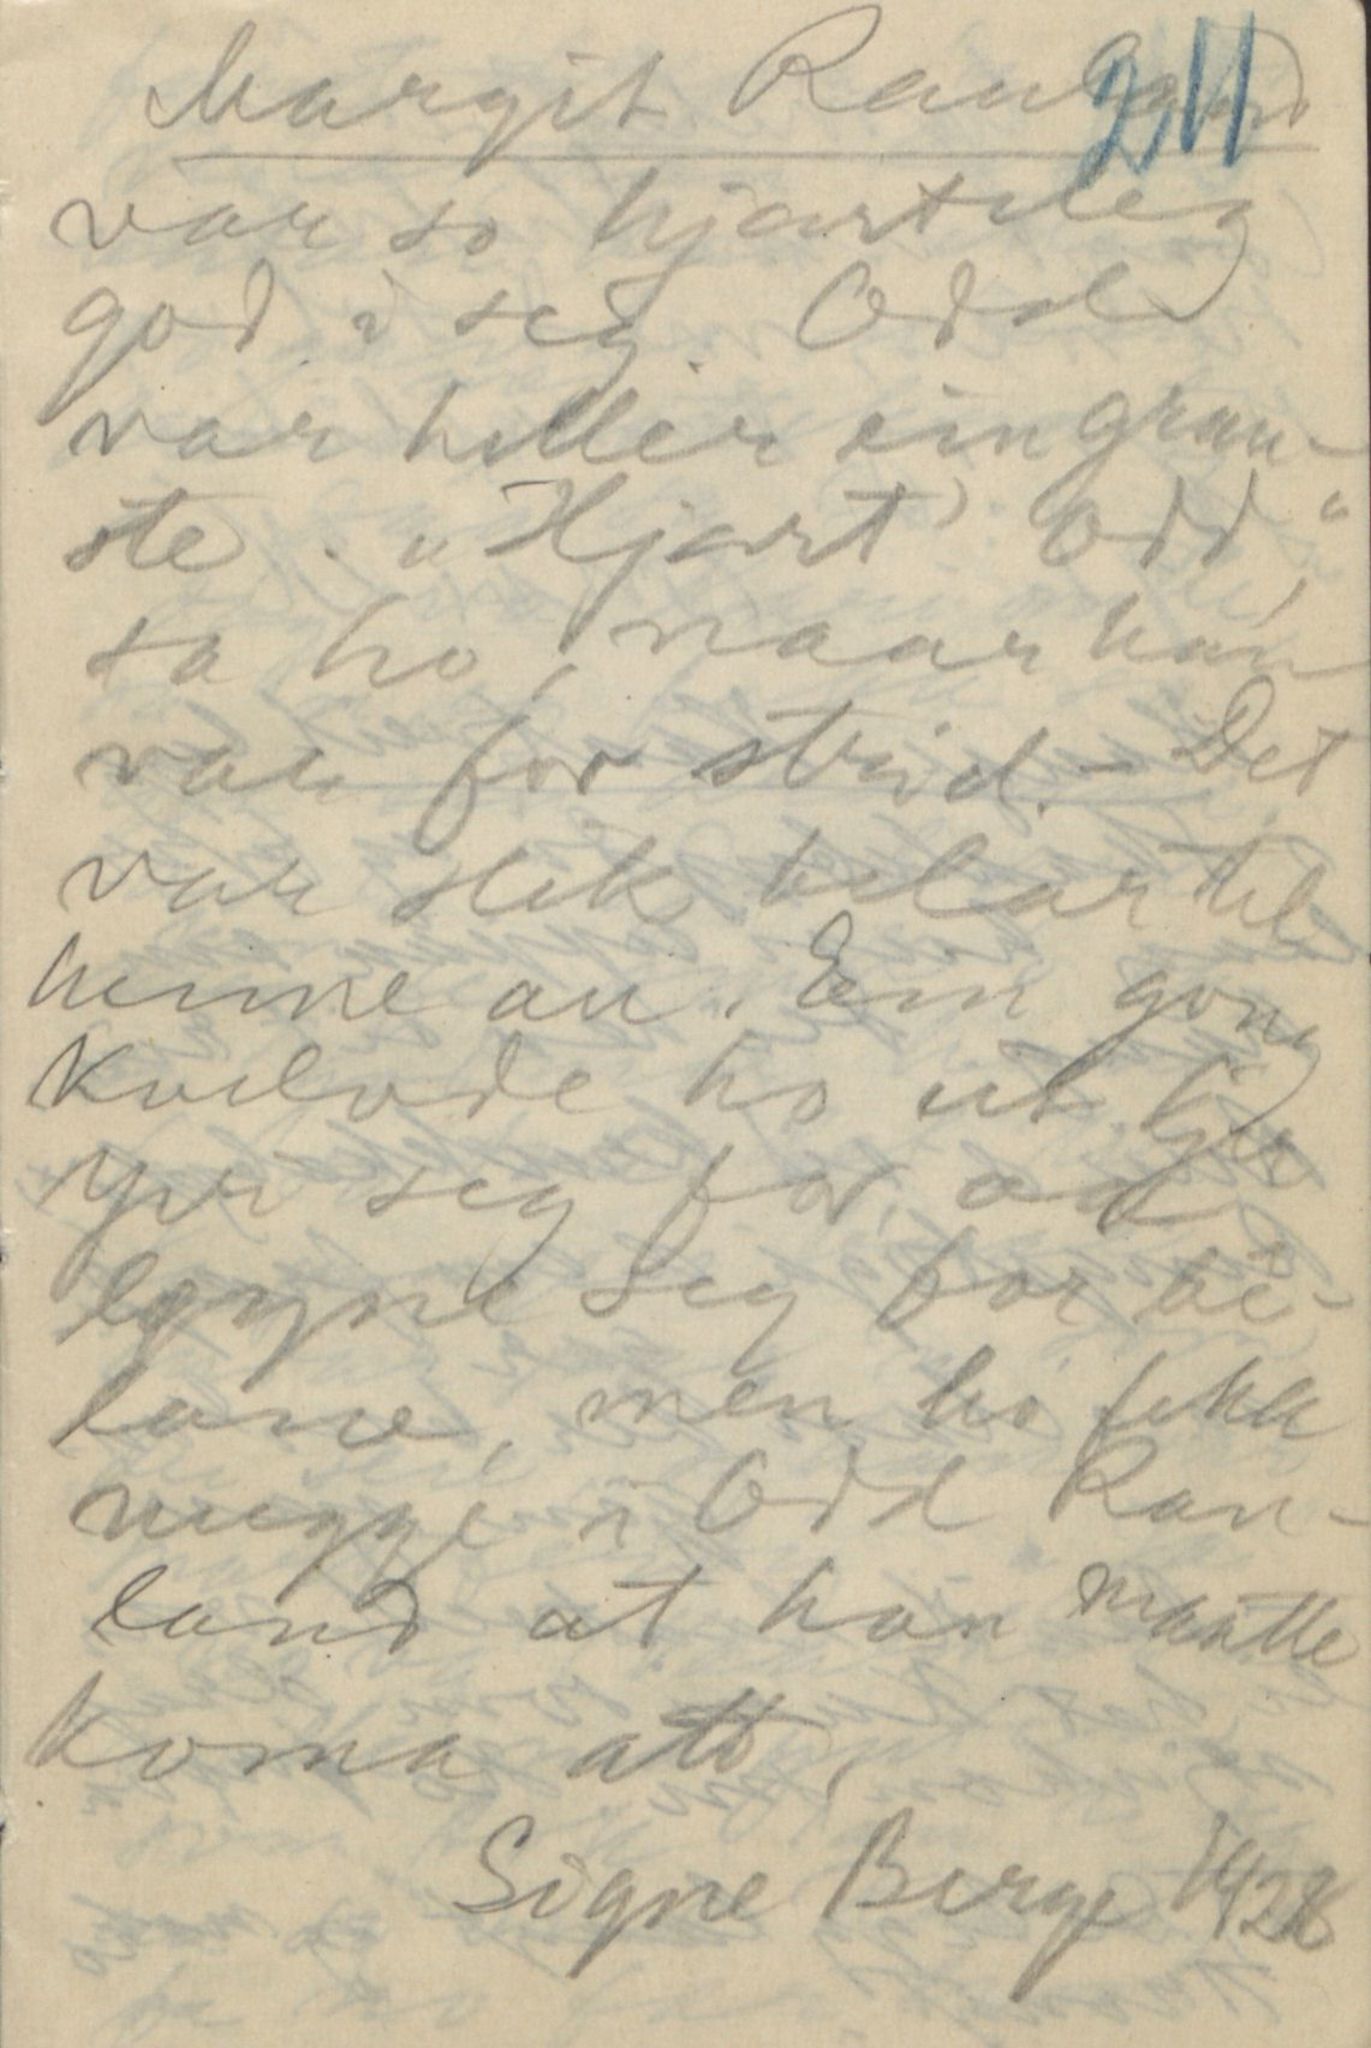 Margit Rauland
211
var so hjarteleg
god i seg. Odd
var heller ein gran-
ste. "Hjart' Odd,"
sa ho, naar han
var for strid. - Det
var slik belar til
henne au. Ein gong
kvelvde ho ut
yvi seg for aa
løyne seg for be-
larne, men ho fekk
nugge i Odd Rau-
land at han maatte
koma att,
Signe Berge 1928